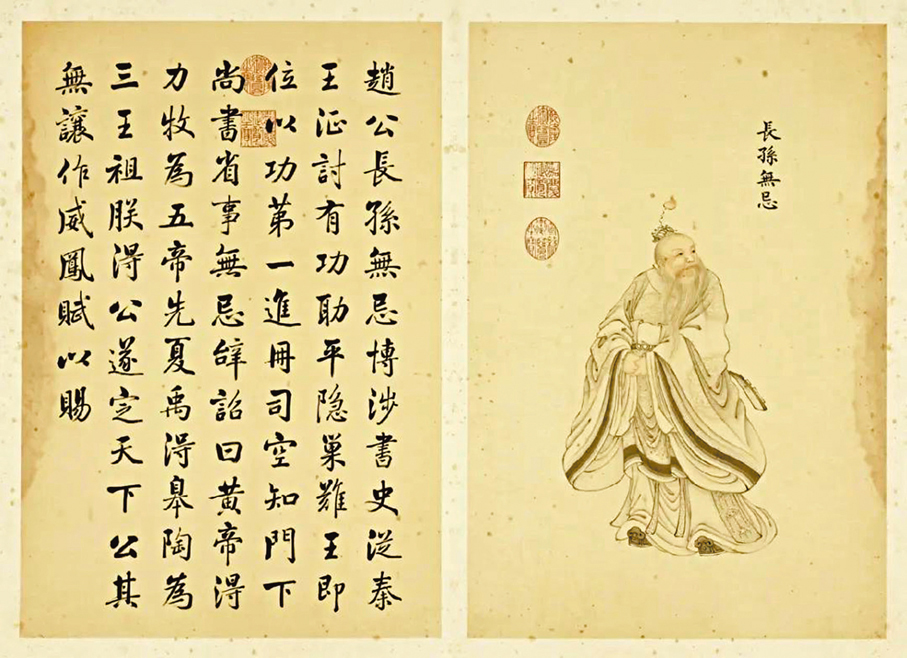 長孫無忌
趙公長孫無忌博涉書史從秦
王征討有功助平隐巢難王即
位以功第一進冊司空知門下
尚書省事無忌辭詔曰黃帝得
力牧為五帝先夏禹得皋陶為
三王祖朕得公遂定天下公其
無讓作威鳳賦以賜